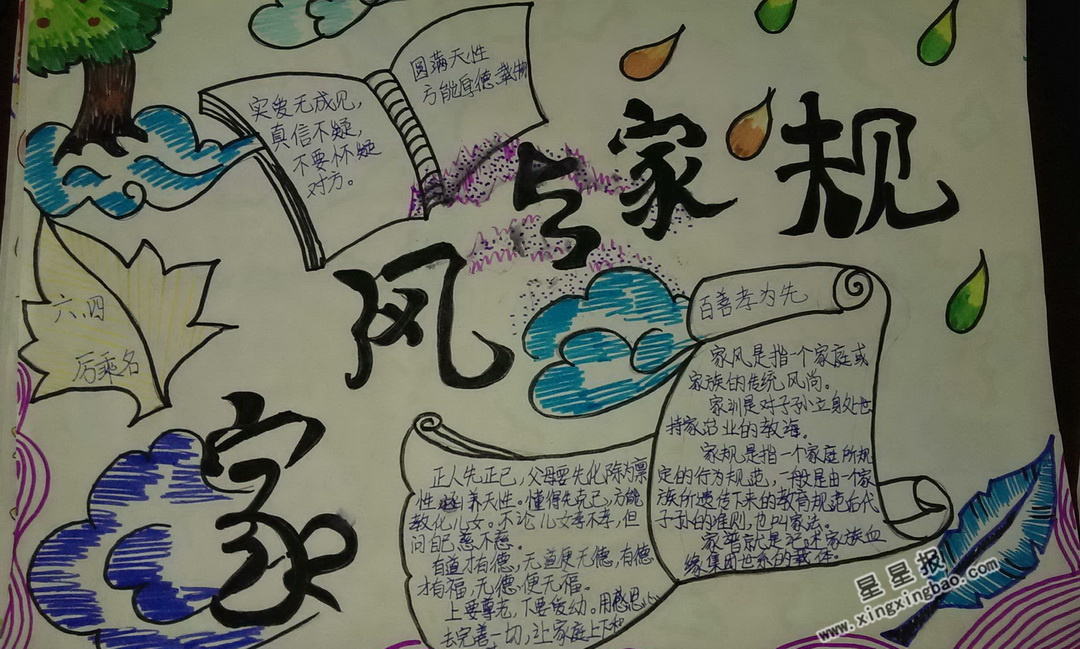 家风与家规
实爱无成见，
真信不疑，
不要怀疑
对方。
圆满天性
方能厚德载物
六.四
厉乘名
百善孝为先
家风是指一个家庭或
家族的传统风尚。
家训是对子孙立身处世
持家治业的教诲。
家规是指一个家庭所规
定的行为规范，一般是由一个家
族所遗传下来的教育规范后代
子孙的准则，也叫家法。
家谱就是记述家族血
缘集团世系的载体。
正人先正己，父母要先化除禀
性养天性。懂得先克己，方能
教化儿女。不论儿女孝不孝，但
问自己慈不慈。
有道才有德，无道便无德，有德
才有福，无德便无福。
上要尊老，下要爱幼。用感恩心
去完善一切，让家庭上下和
星星报
www.xingxingbao.com